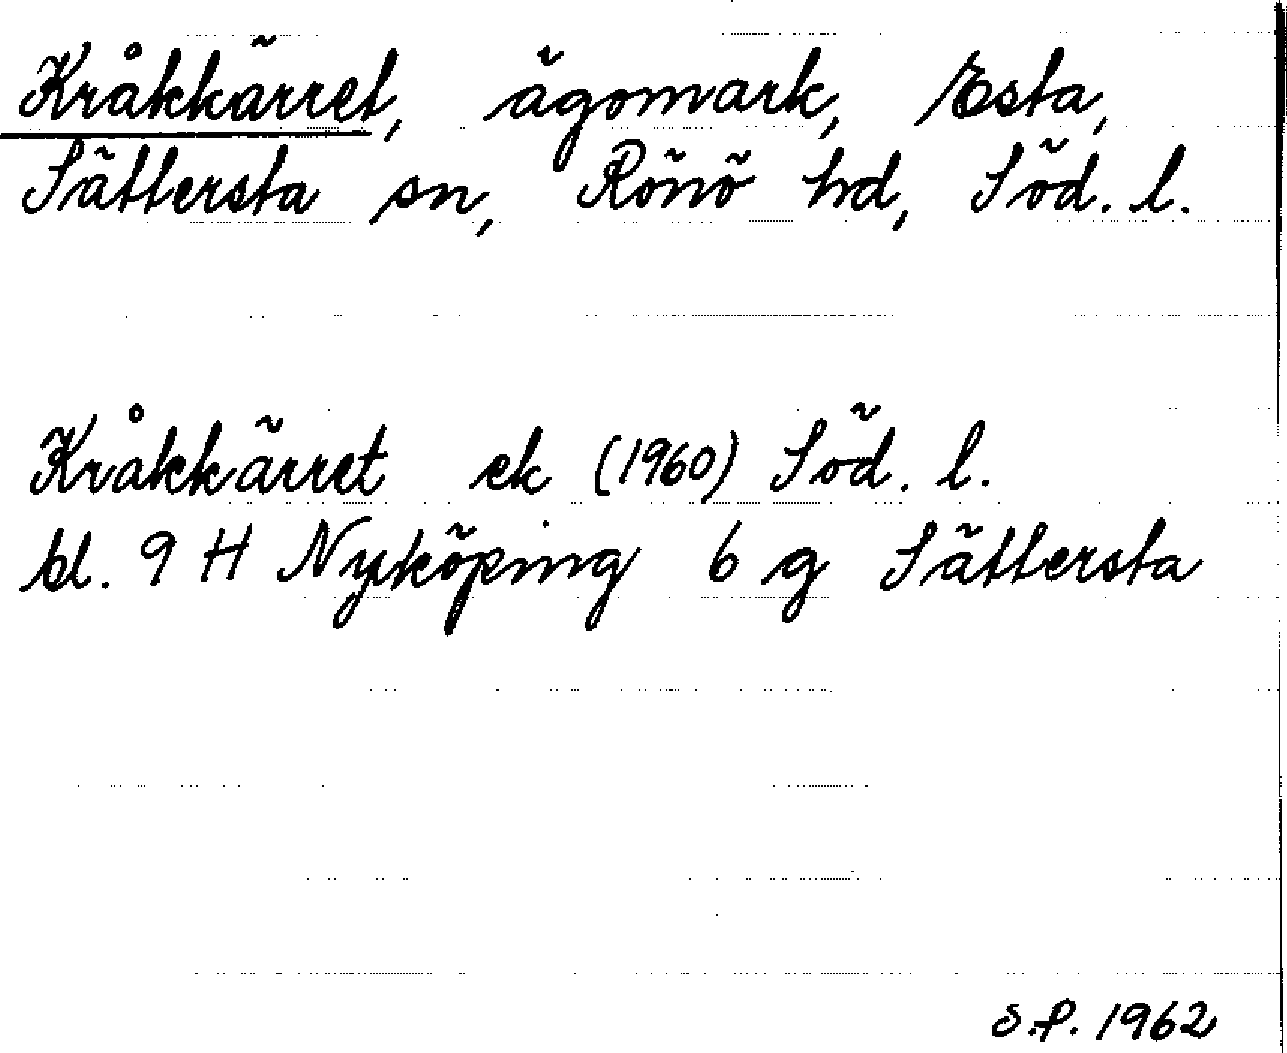 Kråkkärret, ägomark, Esta,
Sättersta sn, Rönö hd, Söd. l.
Kråkkärret ek (1960) Söd. l.
bl. 9 H Nyköping 6 g Sättersta
S.P. 1962